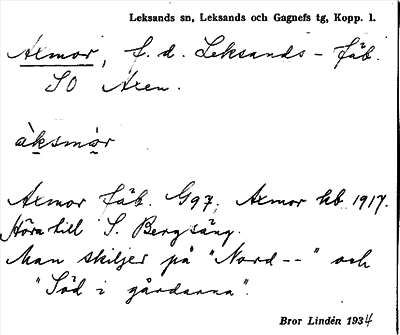 Leksands sn, Leksands och Gagnefs tg, Kopp. l.
Axmor, f. d. Leksands-fäb.
SO Axen.
àksmo̱r
Axmor fäb. G97; Axmor hb 1917.
Hörn till S. Bergsäng.
Man skiljer på "Nord--" och
"Söd i gårdarna".
Bror Lindén 1934